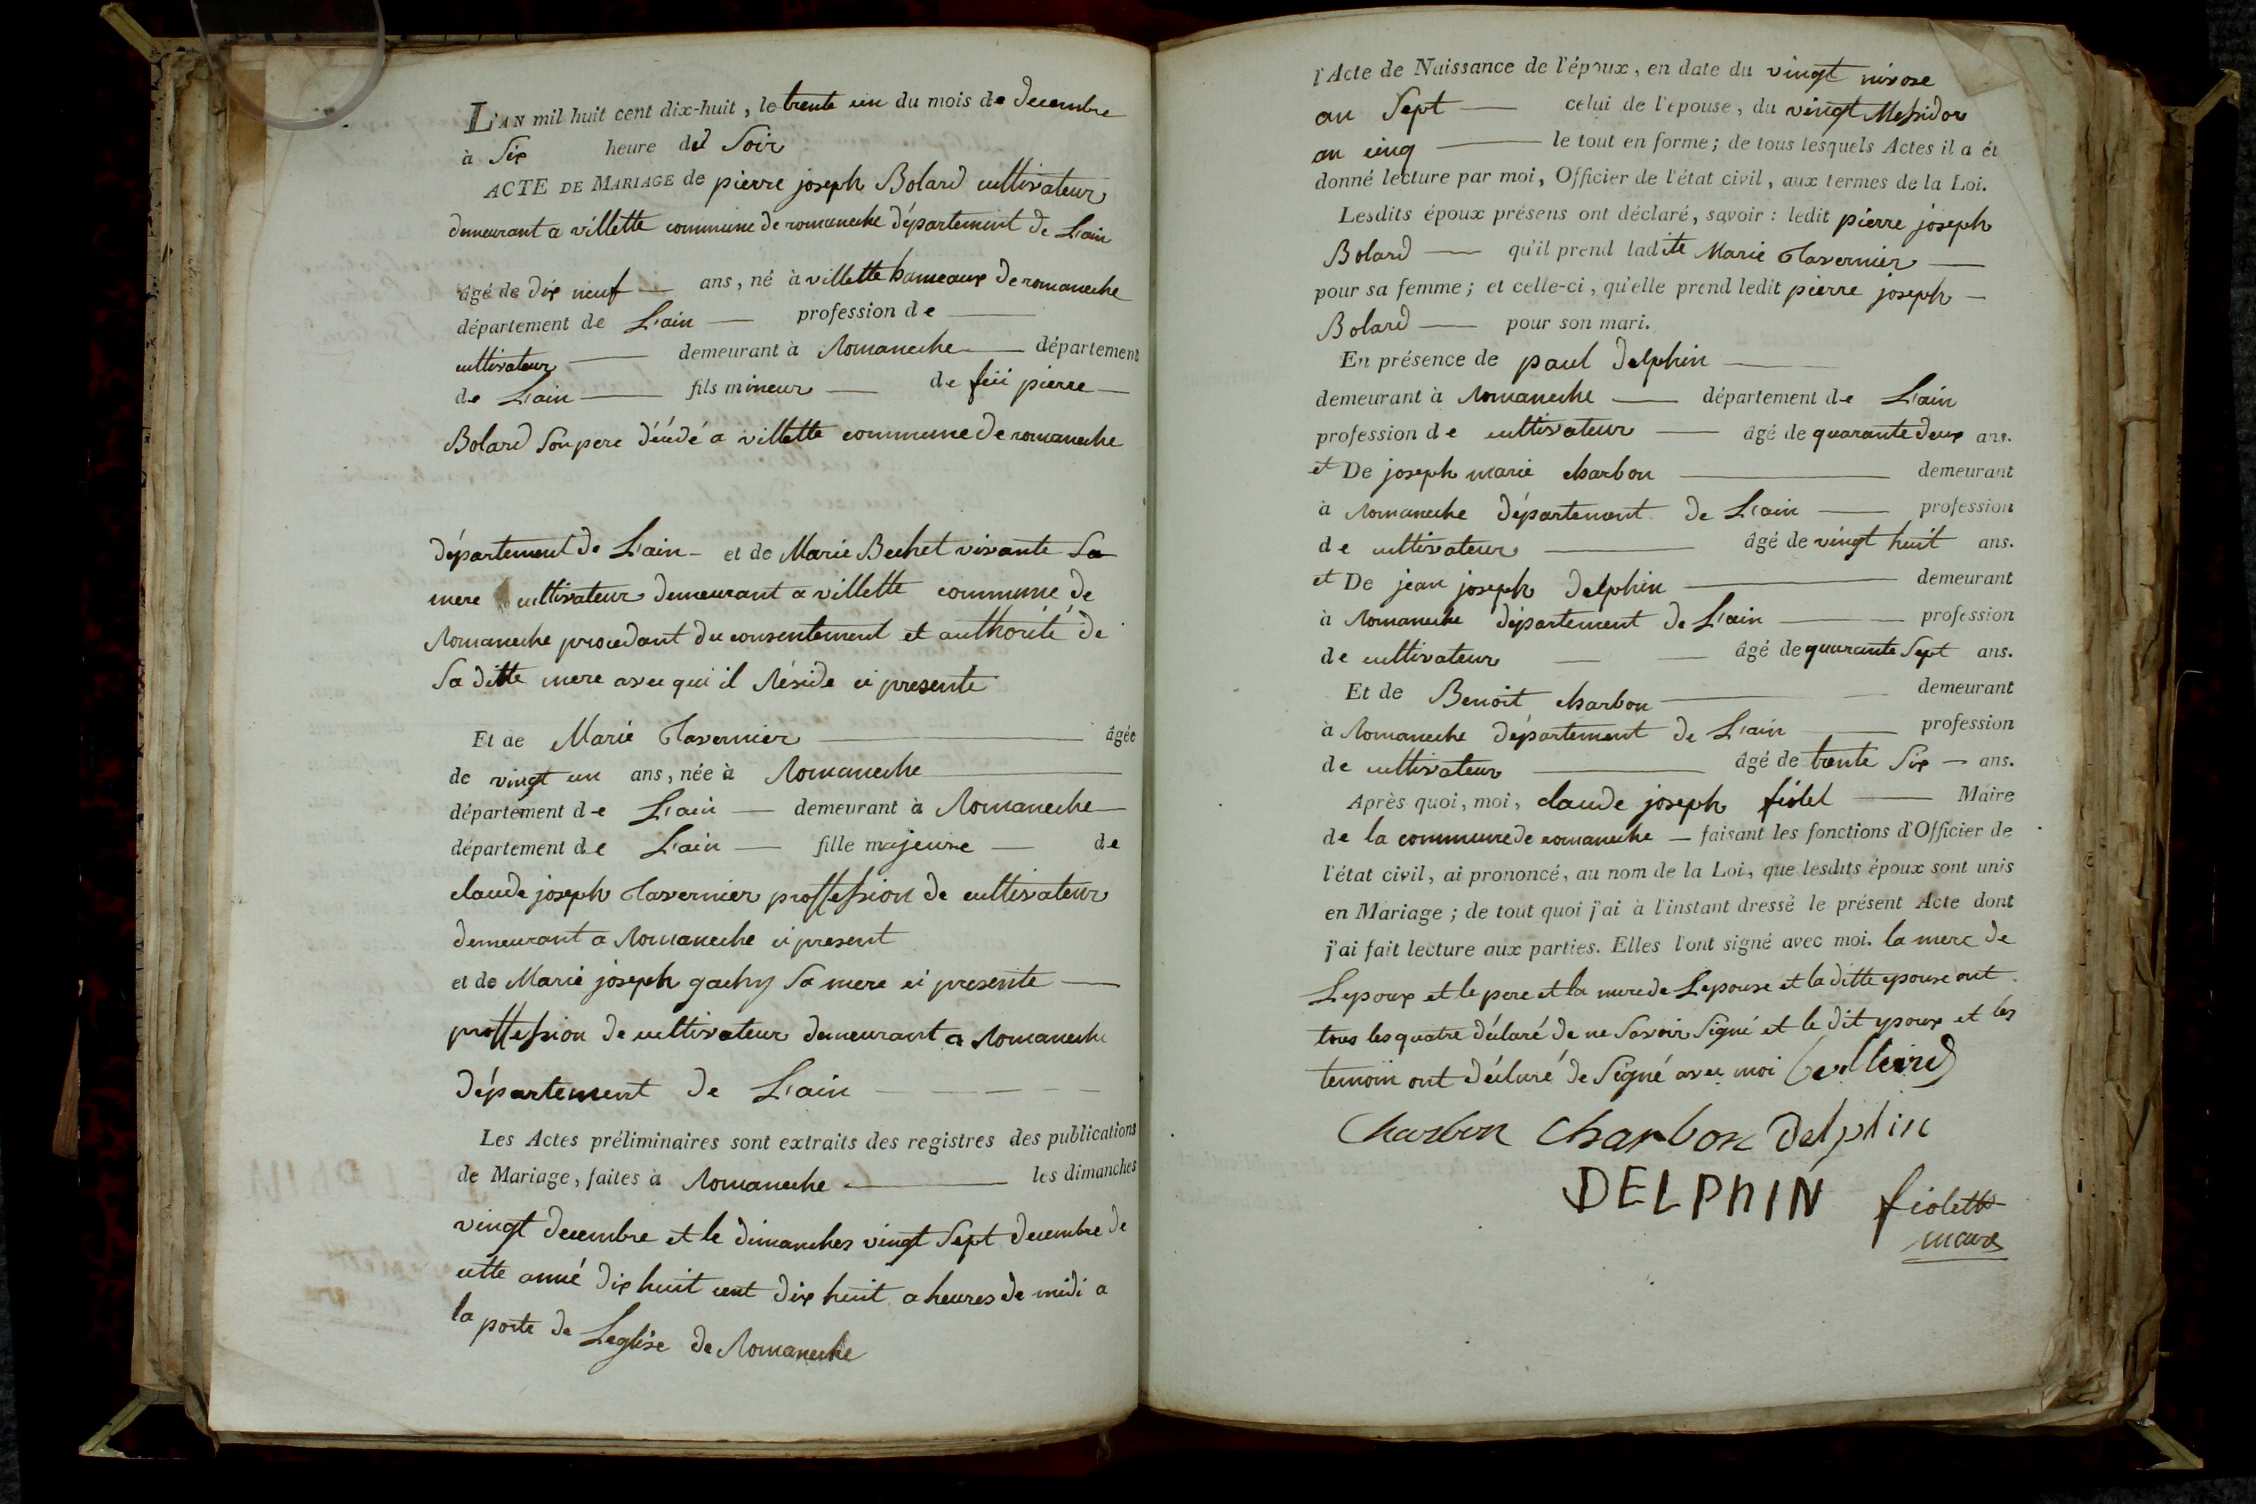 L'AN mil huit cent dix-huit, le trente un du mois de decembre
à Six heure du Soir
ACTE DE MARIAGE de pierre joseph Bolard cultivateur
demeurant a villette commune de romaneche département de L'ain
âgé de dix neuf — ans, né à villette hameaux de romaneche
département de L'ain — profession de —
cultivateur — demeurant à Romaneche — département
de L'ain — fils mineur — de feü pierre —
Bolard Son pere décédé a villette commune de romaneche
département de L'ain — et de Marie Bechet vivante Sa
mere cultivateur demeurant a villette commune de
Romaneche procedant du consentement et authorité de
Sa ditte mere avec qui il Réside ci presente
Et de Marie Tavernier — âgée
de vingt un ans, née à Romaneche —
département de L'ain — demeurant à Romaneche —
département de L'ain — fille majeure — de
claude joseph Tavernier proffession de cultivateur
demeurant a Romaneche ci present
et de Marie joseph gachy Sa mere ci presente —
proffession de cultivateur demeurant a Romaneche
département de L'ain —
Les Actes préliminaires sont extraits des registres des publications
de Mariage, faites à Romaneche — les dimanches
vingt decembre et le dimanches vingt Sept decembre de
cette anné dix huit cent dix huit a heures de midi a
la porte de Leglise de Romaneche
l'Acte de Naissance de l'époux, en date du vingt nivose
an Sept — celui de l'épouse, du vingt Messidor
an cinq — le tout en forme; de tous lesquels Actes il a ét
donné lecture par moi, Officier de l'état civil, aux termes de la Loi.
Lesdits époux présens ont déclaré, savoir: ledit pierre joseph
Bolard — qu'il prend ladite Marie Tavernier —
pour sa femme; et celle-ci, qu'elle prend ledit pierre joseph —
Bolard — pour son mari.
En présence de paul delphin —
demeurant à Romaneche — département de L'ain
profession de cultivateur — âgé de quarante deux ans.
et De joseph marie charbon — demeurant
à Romaneche département de L'ain — profession
de cultivateur — âgé de vingt huit ans.
et De jean joseph delphin — demeurant
à Romaneche département de L'ain — profession
de cultivateur — âgé de quarante Sept ans.
Et de Benoit charbon — demeurant
à Romaneche département de L'ain — profession
de cultivateur — âgé de trente Six — ans.
Après quoi, moi, claude joseph fiolet — Maire
de la commune de romaneche — faisant les fonctions d'Officier de
l'état civil, ai prononcé, au nom de la Loi, que lesdits époux sont unis
en Mariage; de tout quoi j'ai à l'instant dressé le présent Acte dont
j'ai fait lecture aux parties. Elles l'ont signé avec moi. la mere de
Lepoux et le pere et la mere de Lepouse et la ditte epouse ont
tous les quatre déclaré de ne Savoir Signé et le dit epoux et les
temoin ont déclaré de Signé avec moi
Charbon Charbon delphin
DELPHIN fiolett
maire